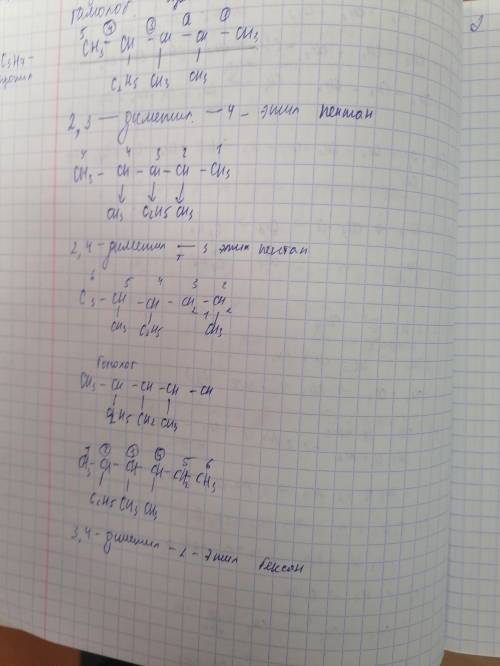 гомолог
5 4 3 2 1
CH3 - CH - CH - CH - CH3
C3H7-
C2H5 CH3 CH3
2,3 — диметил — 4 - этил пентан
4 3 2 1
CH3 - CH - CH - CH - CH3
CH3 C2H5 CH3
2,4 - диметил — 3 этил пентан
6 5 4 3 2
C3 - CH - CH - CH2 - CH2
1
CH3 C2H5 CH3
Гомолог
CH3 - CH - CH - CH - CH
C2H5 CH2 CH3
5 6
CH3 - CH - CH - CH - CH2 - CH3
C2H5 CH3 CH3
3,4 - диметил - 2 - этил гексан